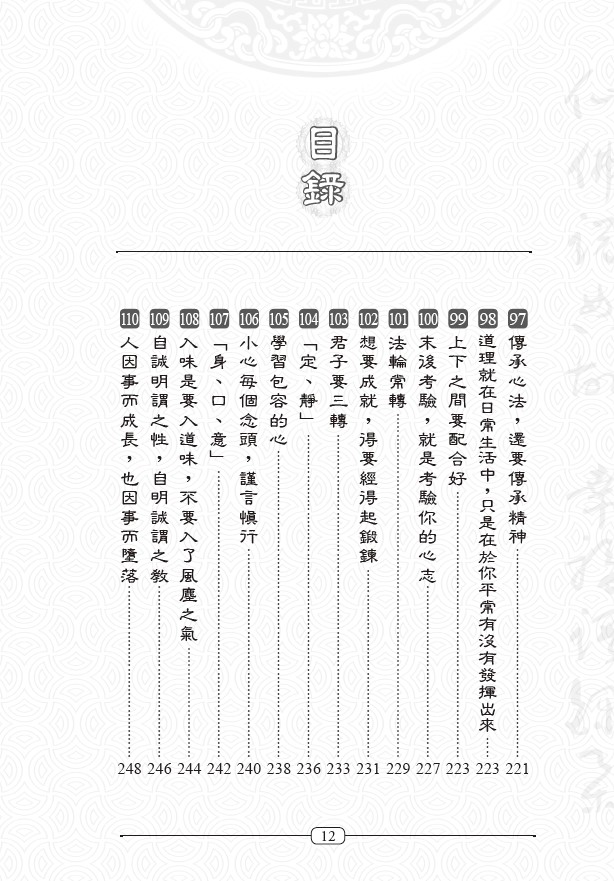 目錄
97 傳承心法，還要傳承精神 221
98 道理就在日常生活中，只是在於你平常有沒有發揮出來 223
99 上下之間要配合好 223
100 末後考驗，就是考驗你的心志 227
101 法輪常轉 229
102 想要成就，得要經得起鍛鍊 231
103 君子要三轉 233
104 「定、靜」 236
105 學習包容的心 238
106 小心每個念頭，謹言慎行 240
107 「身、口、意」 242
108 入味是要入道味，不要入了風塵之氣 244
109 自誠明謂之性，自明誠謂之教 246
110 人因事而成長，也因事而墮落 248
12